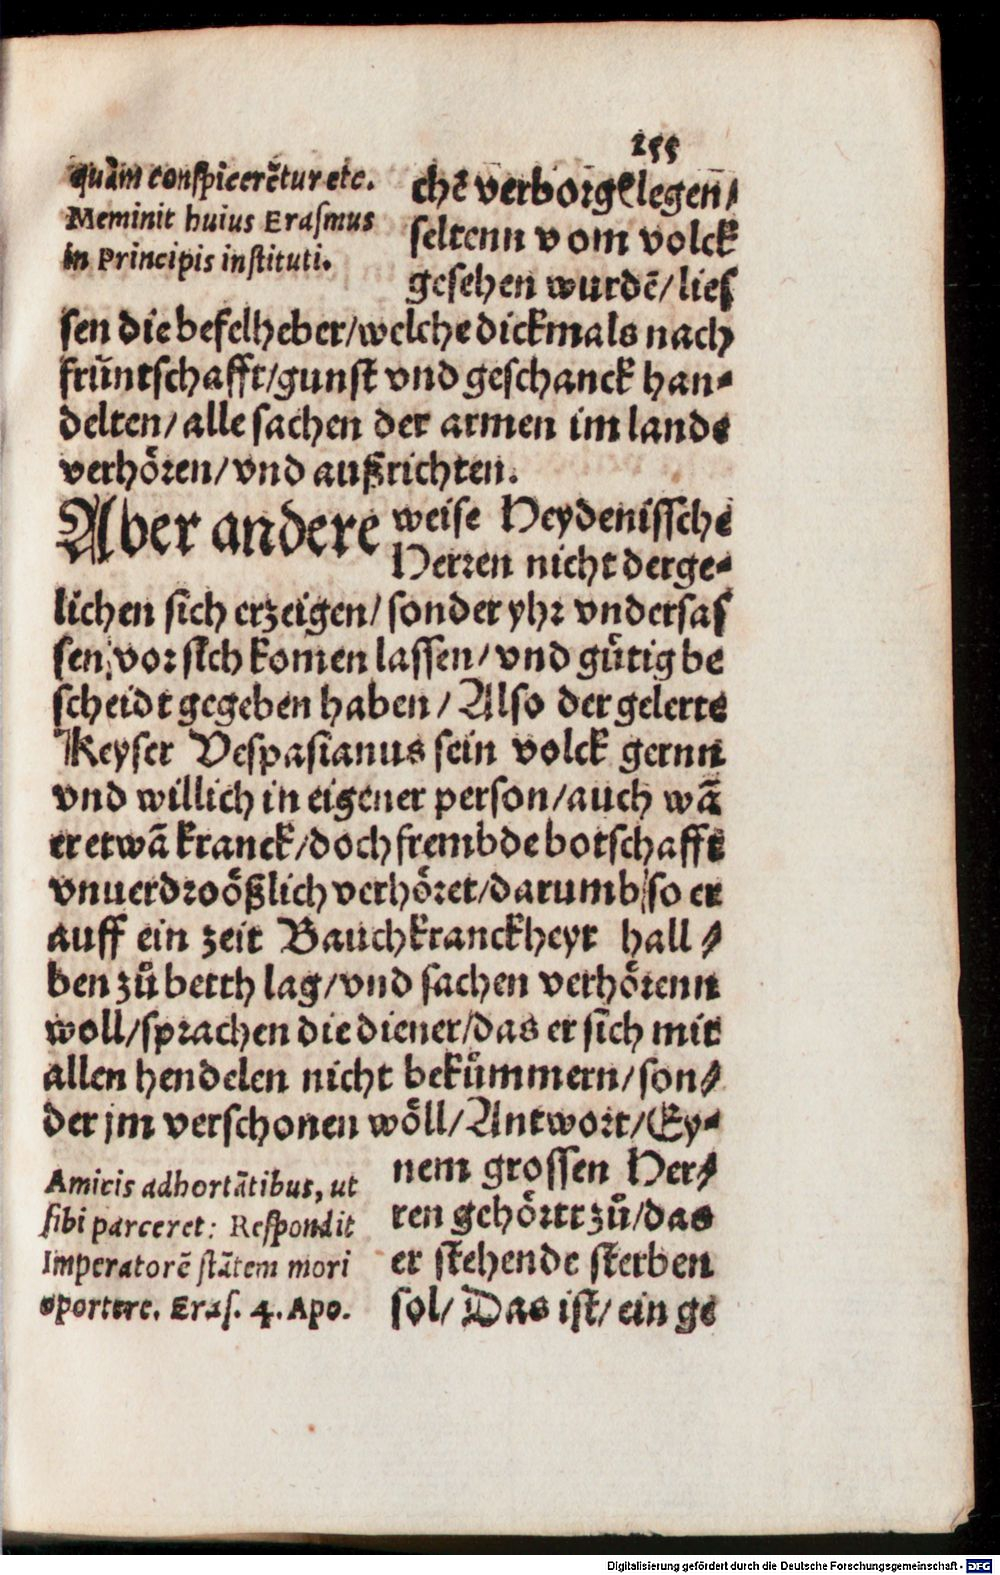 255
quàm conspicerẽtur etc.
Meminit huius Erasmus
in Principis instituti.
chẽ verborgẽ legen̄/
seltenn vom volck
gesehen wurdẽ/ lies
sen die befelheber/welche dickmals nach
frũntschafft/gunst vnd geschanck han-
delten/ alle sachen der armen im lande
verhoͤren/ vnd außrichten.
Aber andere weise Heydenissche
Herren nicht derge-
lichen sich erzeigen/ sonder yhr vndersas
sen vor sich komen lassen/ vnd guͤtig be
scheidt gegeben haben / Also der gelerte
Keyser Vespasianus sein volck gernn
vnd willich in eigener person/auch wã
er etwã kranck/doch frembde botschafft
vnuerdroößlich verhoͤret/darumb so er
auff ein zeit Bauchkranckheyt hall /
ben zů betth lag/vnd sachen verhoͤrenn
woll/sprachen die diener/das er sich mit
allen hendelen nicht bekuͤmmern/ son/
der jm verschonen woͤll/Antwort/Ey-
nem grossen Her/
ren gehoͤrtt zů/das
er stehende sterben
sol/ Das ist/ ein ge
Amicis adhortãtibus, ut
sibi parceret: Respondit
Imperatorẽ stãtem mori
oportere. Eras. 4. Apo.
Digitalisierung gefördert durch die Deutsche Forschungsgemeinschaft - DFG